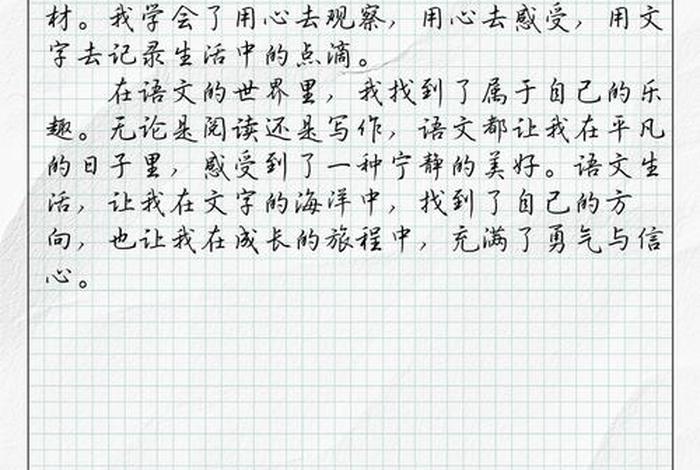 材。我学会了用心去观察，用心去感受，用文
字去记录生活中的点滴。
在语文的世界里，我找到了属于自己的乐
趣。无论是阅读还是写作，语文都让我在平凡
的日子里，感受到了一种宁静的美好。语文生
活，让我在文字的海洋中，找到了自己的方
向，也让我在成长的旅程中，充满了勇气与信
心。